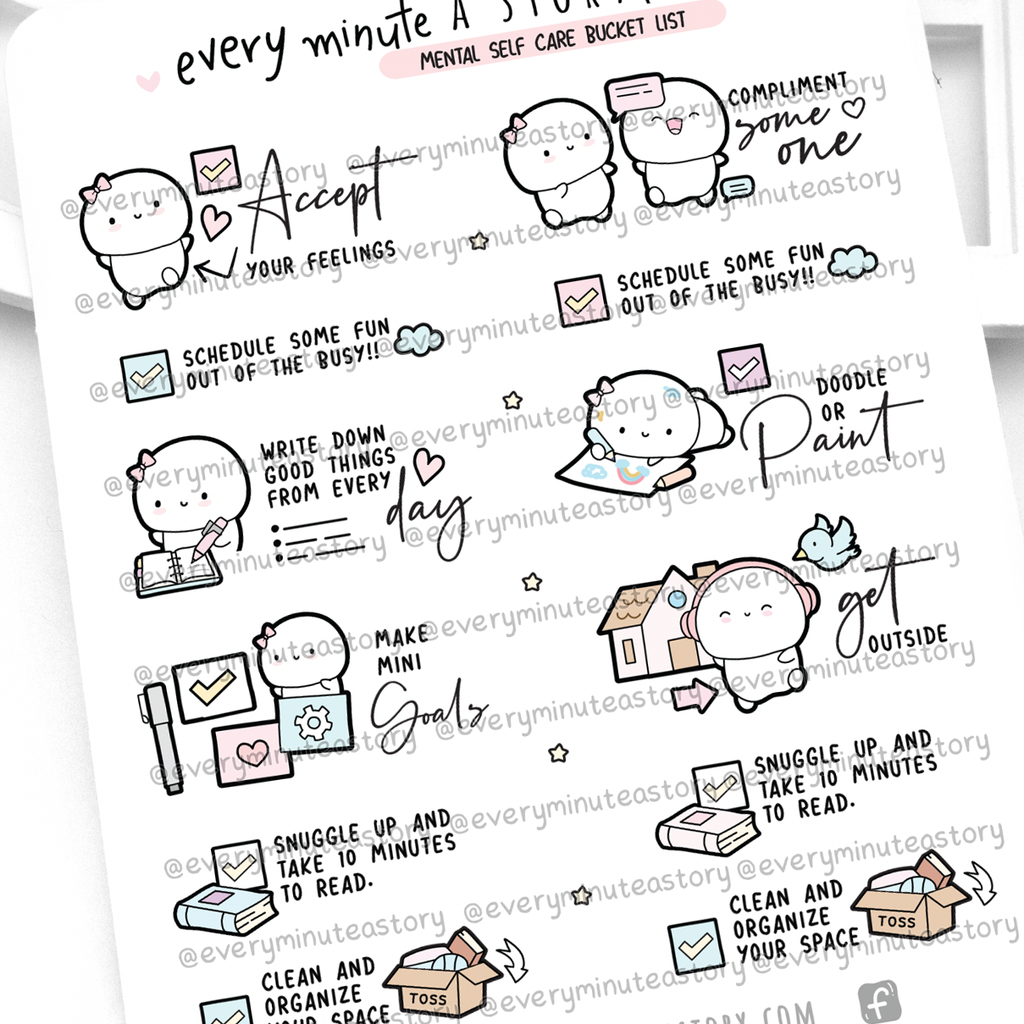 every minute A STORY
MENTAL SELF CARE BUCKET LIST
Accept
YOUR FEELINGS
COMPLIMENT
some
one
SCHEDULE SOME FUN
OUT OF THE BUSY!!
SCHEDULE SOME FUN
OUT OF THE BUSY!!
WRITE DOWN
GOOD THINGS
FROM EVERY
day
DOODLE
OR
Paint
MAKE
MINI
Goals
get
OUTSIDE
SNUGGLE UP AND
TAKE 10 MINUTES
TO READ.
SNUGGLE UP AND
TAKE 10 MINUTES
TO READ.
CLEAN AND
ORGANIZE
YOUR SPACE
TOSS
CLEAN AND
ORGANIZE
YOUR SPACE
TOSS
STORY.COM
f
@everyminuteastory @everyminuteastory @everyminuteastory
@everyminuteastory @everyminuteastory @everyminuteastory
@everyminuteastory @everyminuteastory @everyminuteastory
@everyminuteastory @everyminuteastory @everyminuteastory
@everyminuteastory @everyminuteastory @everyminuteastory
@everyminuteastory @everyminuteastory @everyminuteastory
@everyminuteastory @everyminuteastory @everyminuteastory
@everyminuteastory @everyminuteastory @everyminuteastory
@everyminuteastory @everyminuteastory @everyminuteastory
@everyminuteastory @everyminuteastory @everyminuteastory